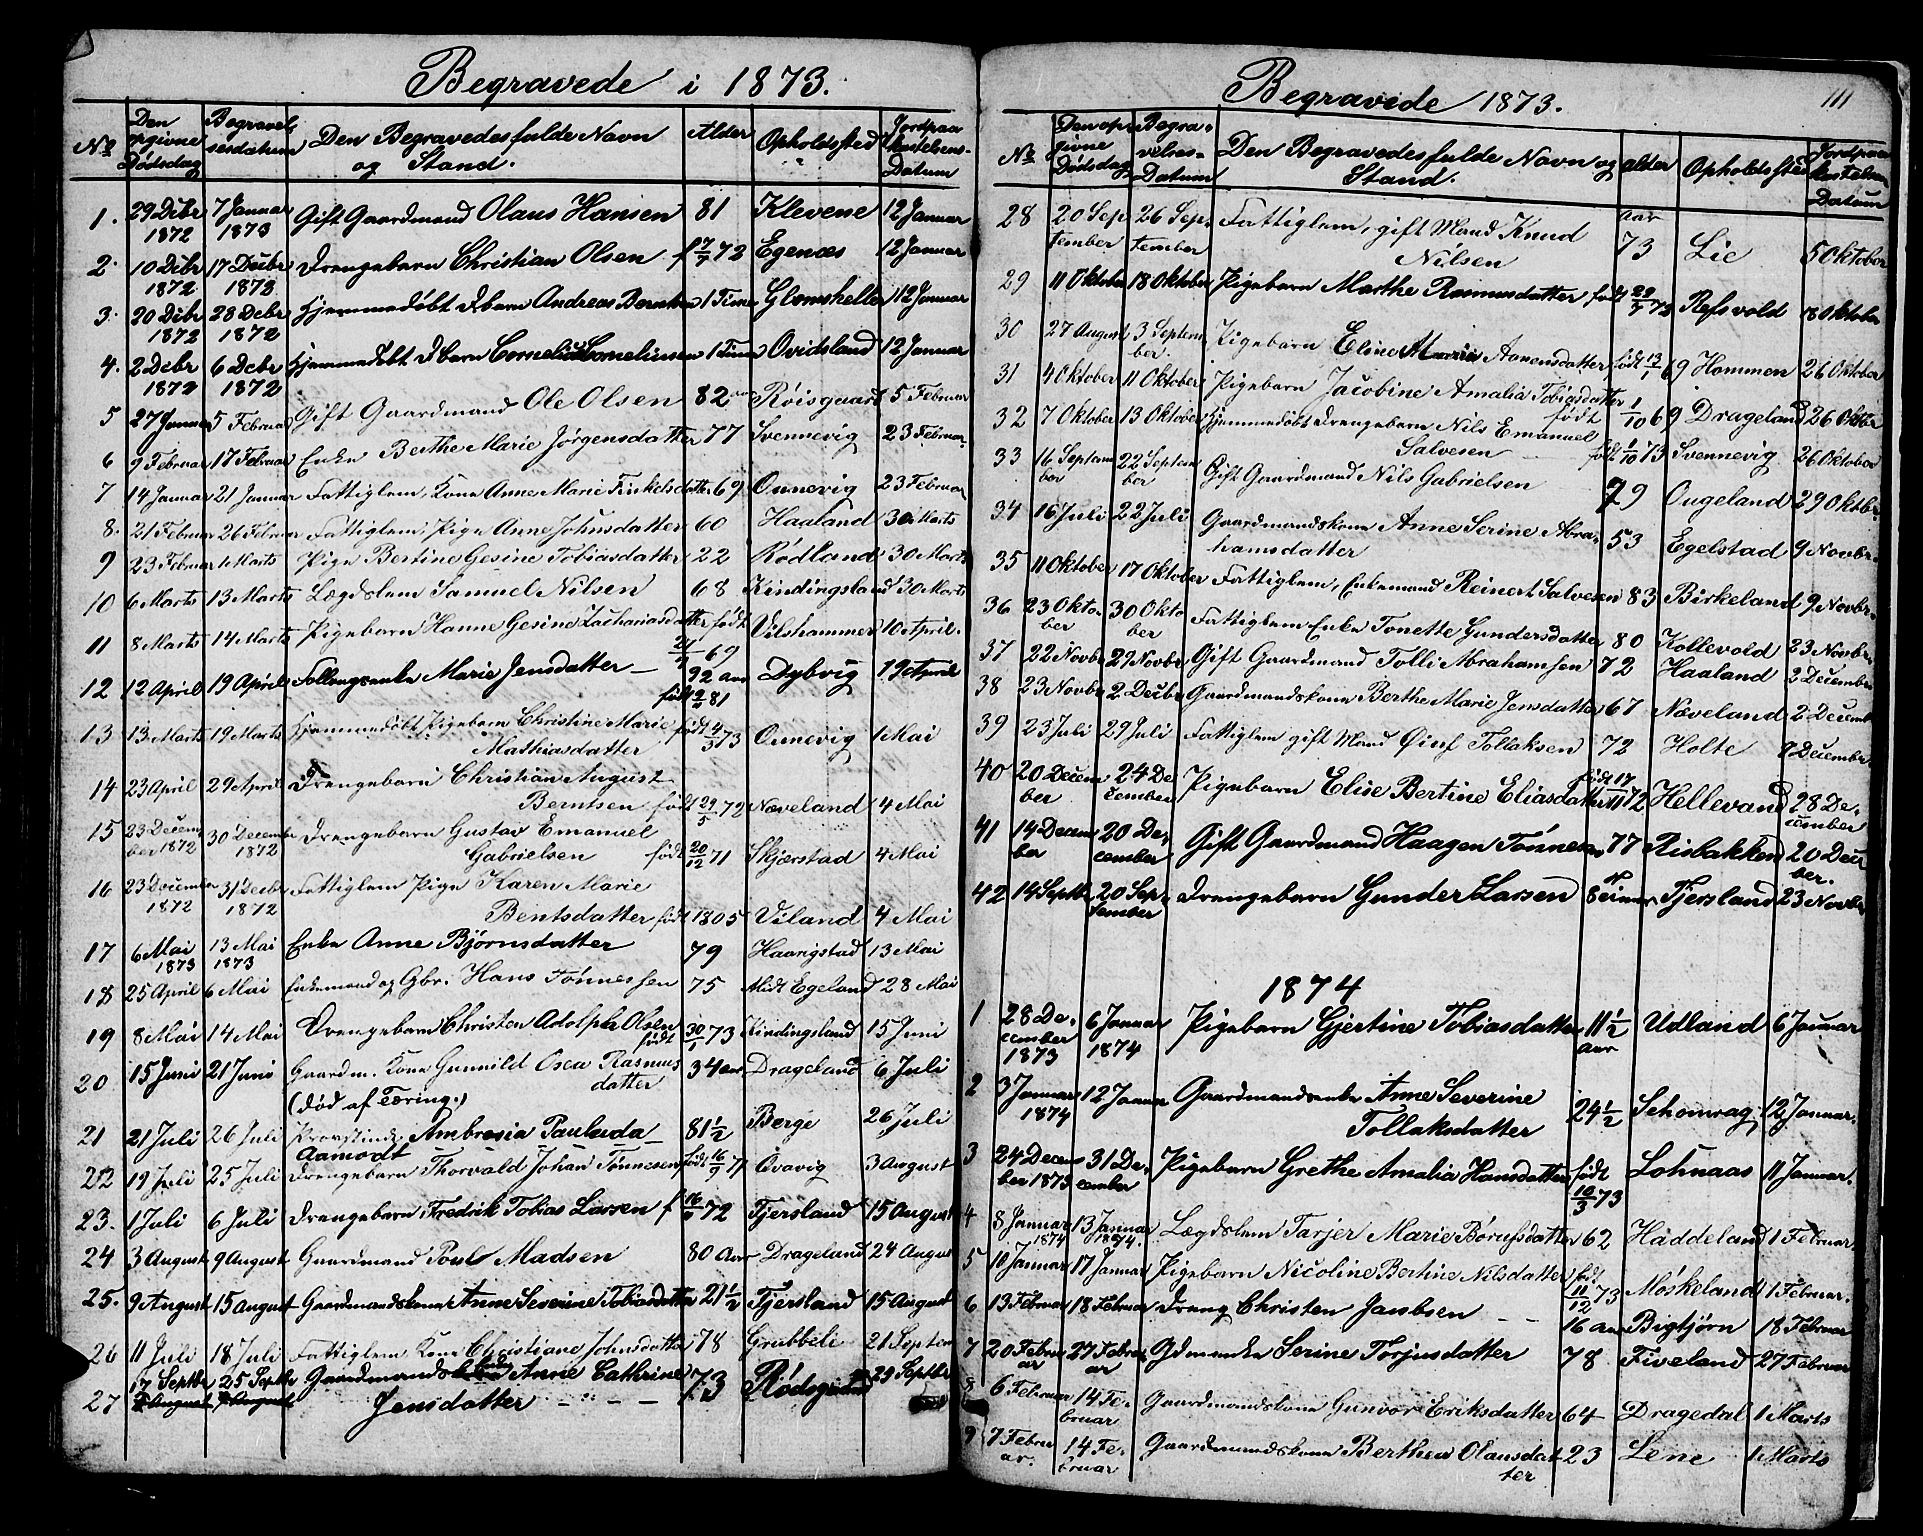 Begravede i 1873.
No Den opgivne Dødsdag Begravelsesdatum Den Begravedes fulde Navn og Stand. Alder Opholdssted Jordpaakastelsens Datum
1. 29 Decbr 1872 7 Januar 1873 Gift Gaardmand Olaus Hansen 81 Klevene 12 Januar
2. 10 Decbr 1872 17 Decbr 1873 Drengebarn Christian Olsen f 7/7 72 Egenæs 12 Januar
3. 20 Decbr 1872 28 Decbr 1872 Hjemmedøbt Dbarn Andreas Berntsen 1 Time 12 Januar
4. 2 Decbr 1872 6 Decbr 1872 Hjemmedøbt Dbarn Cornelius Corneliussen 1 Time Ovidsland 12 Januar
5 27 Januar 5 Februar Gift Gaardmand Ole Olsen 82 Røisgaard 5 Februar
6 9 Februar 17 Februar Enke Berthe Marie Jørgensdatter 77 Svennevig 23 Februar
7 14 Januar 21 Januar Fattiglem, Kone Anne Marie Tinkelsdatter 69 Onnevig 23 Februar
8. 21 Februar 26 Februar Fattiglem Pige Anne Johnsdatter 60 Haaland 30 Marts
9 23 Februar 1 Marts Pige Bertine Gesine Tobiasdatter 22 Rødland 30 Marts
10 6 Marts 13 Marts Lægdslem Samuel Nilsen 68 Kindingsland 30 Marts
11 8 Marts 14 Marts Pigebarn Hanne Gesine Zachariasdatter født 69 Vilshammer 10 April.
12 12 April 19 April Enke Marie Jensdatter 92 aar født 2/2 81 Dybvig 19 April
13 13 Marts 19 Marts Hjemmedøbt Pigebarn Christine Marie Mathiasdatter født 4/3 73 Onnevig 1 Mai
14 23 April 29 April Drengebarn Christian August Berntsen født 29/5 72 Næveland 4 Mai
15 23 December 1872 30 Decembr 1872 Drengebarn Gustav Emanuel Gabrielsen født 20/12 71 Skjærstad 4 Mai
16 23 December 1872 31 Decbr 1872 Fattiglem Pige Karen Marie Bentsdatter født 1805 Viland 4 Mai
17 6 Mai 1873 13 Mai 1873 Enke Anne Bjørnsdatter 79 Haarigstad 13 Mai
18 25 April 6 Mai Enkemand og Gbr. Hans Tønnessen 75 Midt Egeland 28 Mai
19 8 Mai 14 Mai Drengebarn Christen Adolph Olsen født 30/1 73 Kindingsland 15 Juni
20 15 Juni 21 Juni Gaardm. Kone Gunnild Osea Rasmusdatter (død af Tæring.) 34 aar Drageland 6 Juli
21 21 Juli 26 Juli Provstinde Ambrosia Pauluda Aamodt 81 1/2 Berge 26 Juli
22 19 Juli 25 Juli Drengebarn Thorvald Johan Tønnesen født 16/9 71 Ovavig 3 August
23. 1 Juli 6 Juli Drengebarn Fredrik Tobias Larsen f 72 Tjersland 15 August
24 3 August 9 August Gaardmand Poul Madsen 80 Aar Drageland 24 August
25. 9 August 15 August Gaardmandskone Anne Severine Tobiasdatter 21 1/2 Tjersland 15 August
26 11 Juli 18 Juli Fattiglem Kone Christiane Johnsdatter 78 Grubbeli 21 Septem
27 17 Septbr 25 Septbr Gaardmands Anne Cathrine Jensdatter 73 29 Septbr
Begravede 1873.
111
No Den opgivne Dødsdag Begravelses-Datum Den Begravedes fulde Navn og Stand. Alder Opholdssted Jordpaakastelsens Datum
28 20 September 26 September Fattiglem, gift Mand Knud Nilsen aar 73 Lie 5 Oktober
29 11 Oktober 18 Oktober Pigebarn Marthe Rasmusdatter født 29/7 73 Refsvold 18 Oktober
30 27 August 3 September Pigebarn Eline Maria Aanensdatter født 13/1 69 Hommen 26 Oktober
31 4 Oktober 11 Oktober Pigebarn Jacobine Amalia Tobiasdatter født 1/10 69 Drageland 26 Oktbr
32 7 Oktober 13 Oktober Hjemmedøbt Drengebarn Nils Emanuel Salvesen født 1/10 73 Svennevig 26 Oktober
33 16 September 22 September Gift Gaardmand Nils Gabrielsen 79 Ougeland 29 Oktbr.
34 16 Juli 22 Juli Gaardmandskone Anne Serine Abrahamsdatter 53 Egelstad 9 Novbr.
35 11 Oktober 17 Oktober Fattiglem, Enkemand Reinert Salvesen 83 Birkeland 9 Novbr.
36 23 Oktober 30 Oktober Fattiglem Enke Tonette Gundersdatter 80 Kollevold 23 Novbr.
37 22 Novbr 29 Novbr Gift Gaardmand Tolli Abrahamsen 72 Haaland 3 December
38 23 Novbr 2 Decbr Gaardmandskone Berthe Marie Jensdatter 67 Næveland 2 Decemb
39 23 Juli 29 Juli Fattiglem gift Mand Øiuf Tollaksen 72 Holte 7 Decembr
40 20 December 24 December Pigebarn Elise Bertine Eliasdatter født 17/11 72 Hellevand 28 December
41 14 December 20 December Gift Gaardmand Haagen Tønnesen 77 Risbakken 20 December.
42 14 Septbr 20 September Drengebarn Gunder Larsen 8 Timer Tjersland 23 Novbr
1874
1 28 December 1873 6 Januar 1874 Pigebarn Gjertine Tobiasdatter 11 1/2 aar Udland 6 Januar
2 3 Januar 1874 12 Januar Gaardmandsenke Anne Severine Tollaksdatter 24 1/2 Schomrag 12 Januar.
3 24 December 1873 31 December Pigebarn Grethe Amalia Hansdatter født 10/3 73 Lohnaas 11 Januar.
4 8 Januar 1874 13 Januar 1874. Lægdslem Tarjer Marie Børufsdatter 62 Häddeland 1 Februar.
5 10 Januar 17 Januar Pigebarn Nicoline Bertine Nilsdatter født 11/12 73 Møskeland 1 Februar.
6 13 Februar 18 Februar Dreng Christen Jacobsen 16 aar Bigtjørn 18 Februar
7 20 Februar 27 Februar Gdmenke Serine Torjusdatter 78 Fiveland 27 Februar
8 6 Februar 14 Februar Gaardmandskone Gunvor Eriksdatter 64 Dragedal 1 Marts
9 7 Februar. 14 Februar Gaardmandskone Berthea Olausdatter 23 Lene 1 Marts